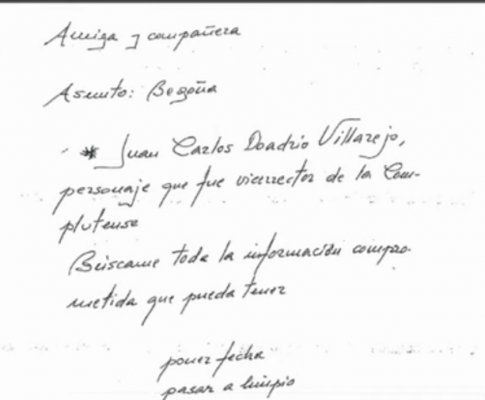 Amiga y compañera
Asunto: Begoña
* Juan Carlos Doadrio Villarejo,
personaje que fue vicerrector de la Com-
plutense
Búscame toda la información compro
metida que pueda tener
poner fecha
pasar a limpio